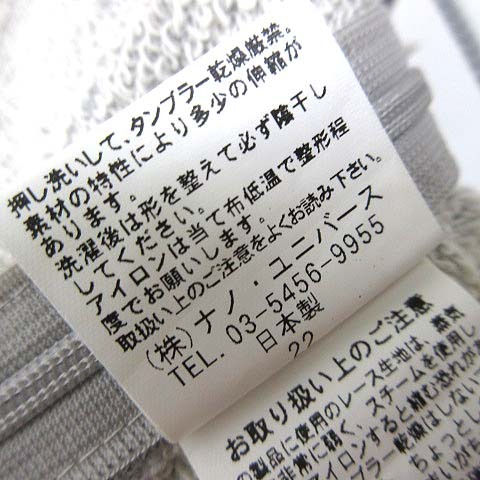 押し洗いして、タンブラー乾燥厳禁。
素材の特性により多少の伸縮が
あります。
洗濯後は形を整えて必ず陰干し
してください。
アイロンは当て布低温で整形程
度でお願いします。
取扱い上のご注意をよくお読み下さい。
(株)ナノ・ユニバース
TEL. 03-5456-9955
日本製
22
お取り扱い上のご注意
の製品に使用のレース生地は、蒸気
非常に弱く、スチームを使用し
アイロンすると縮む恐れが
ブラー乾燥はしない
ちょっとし